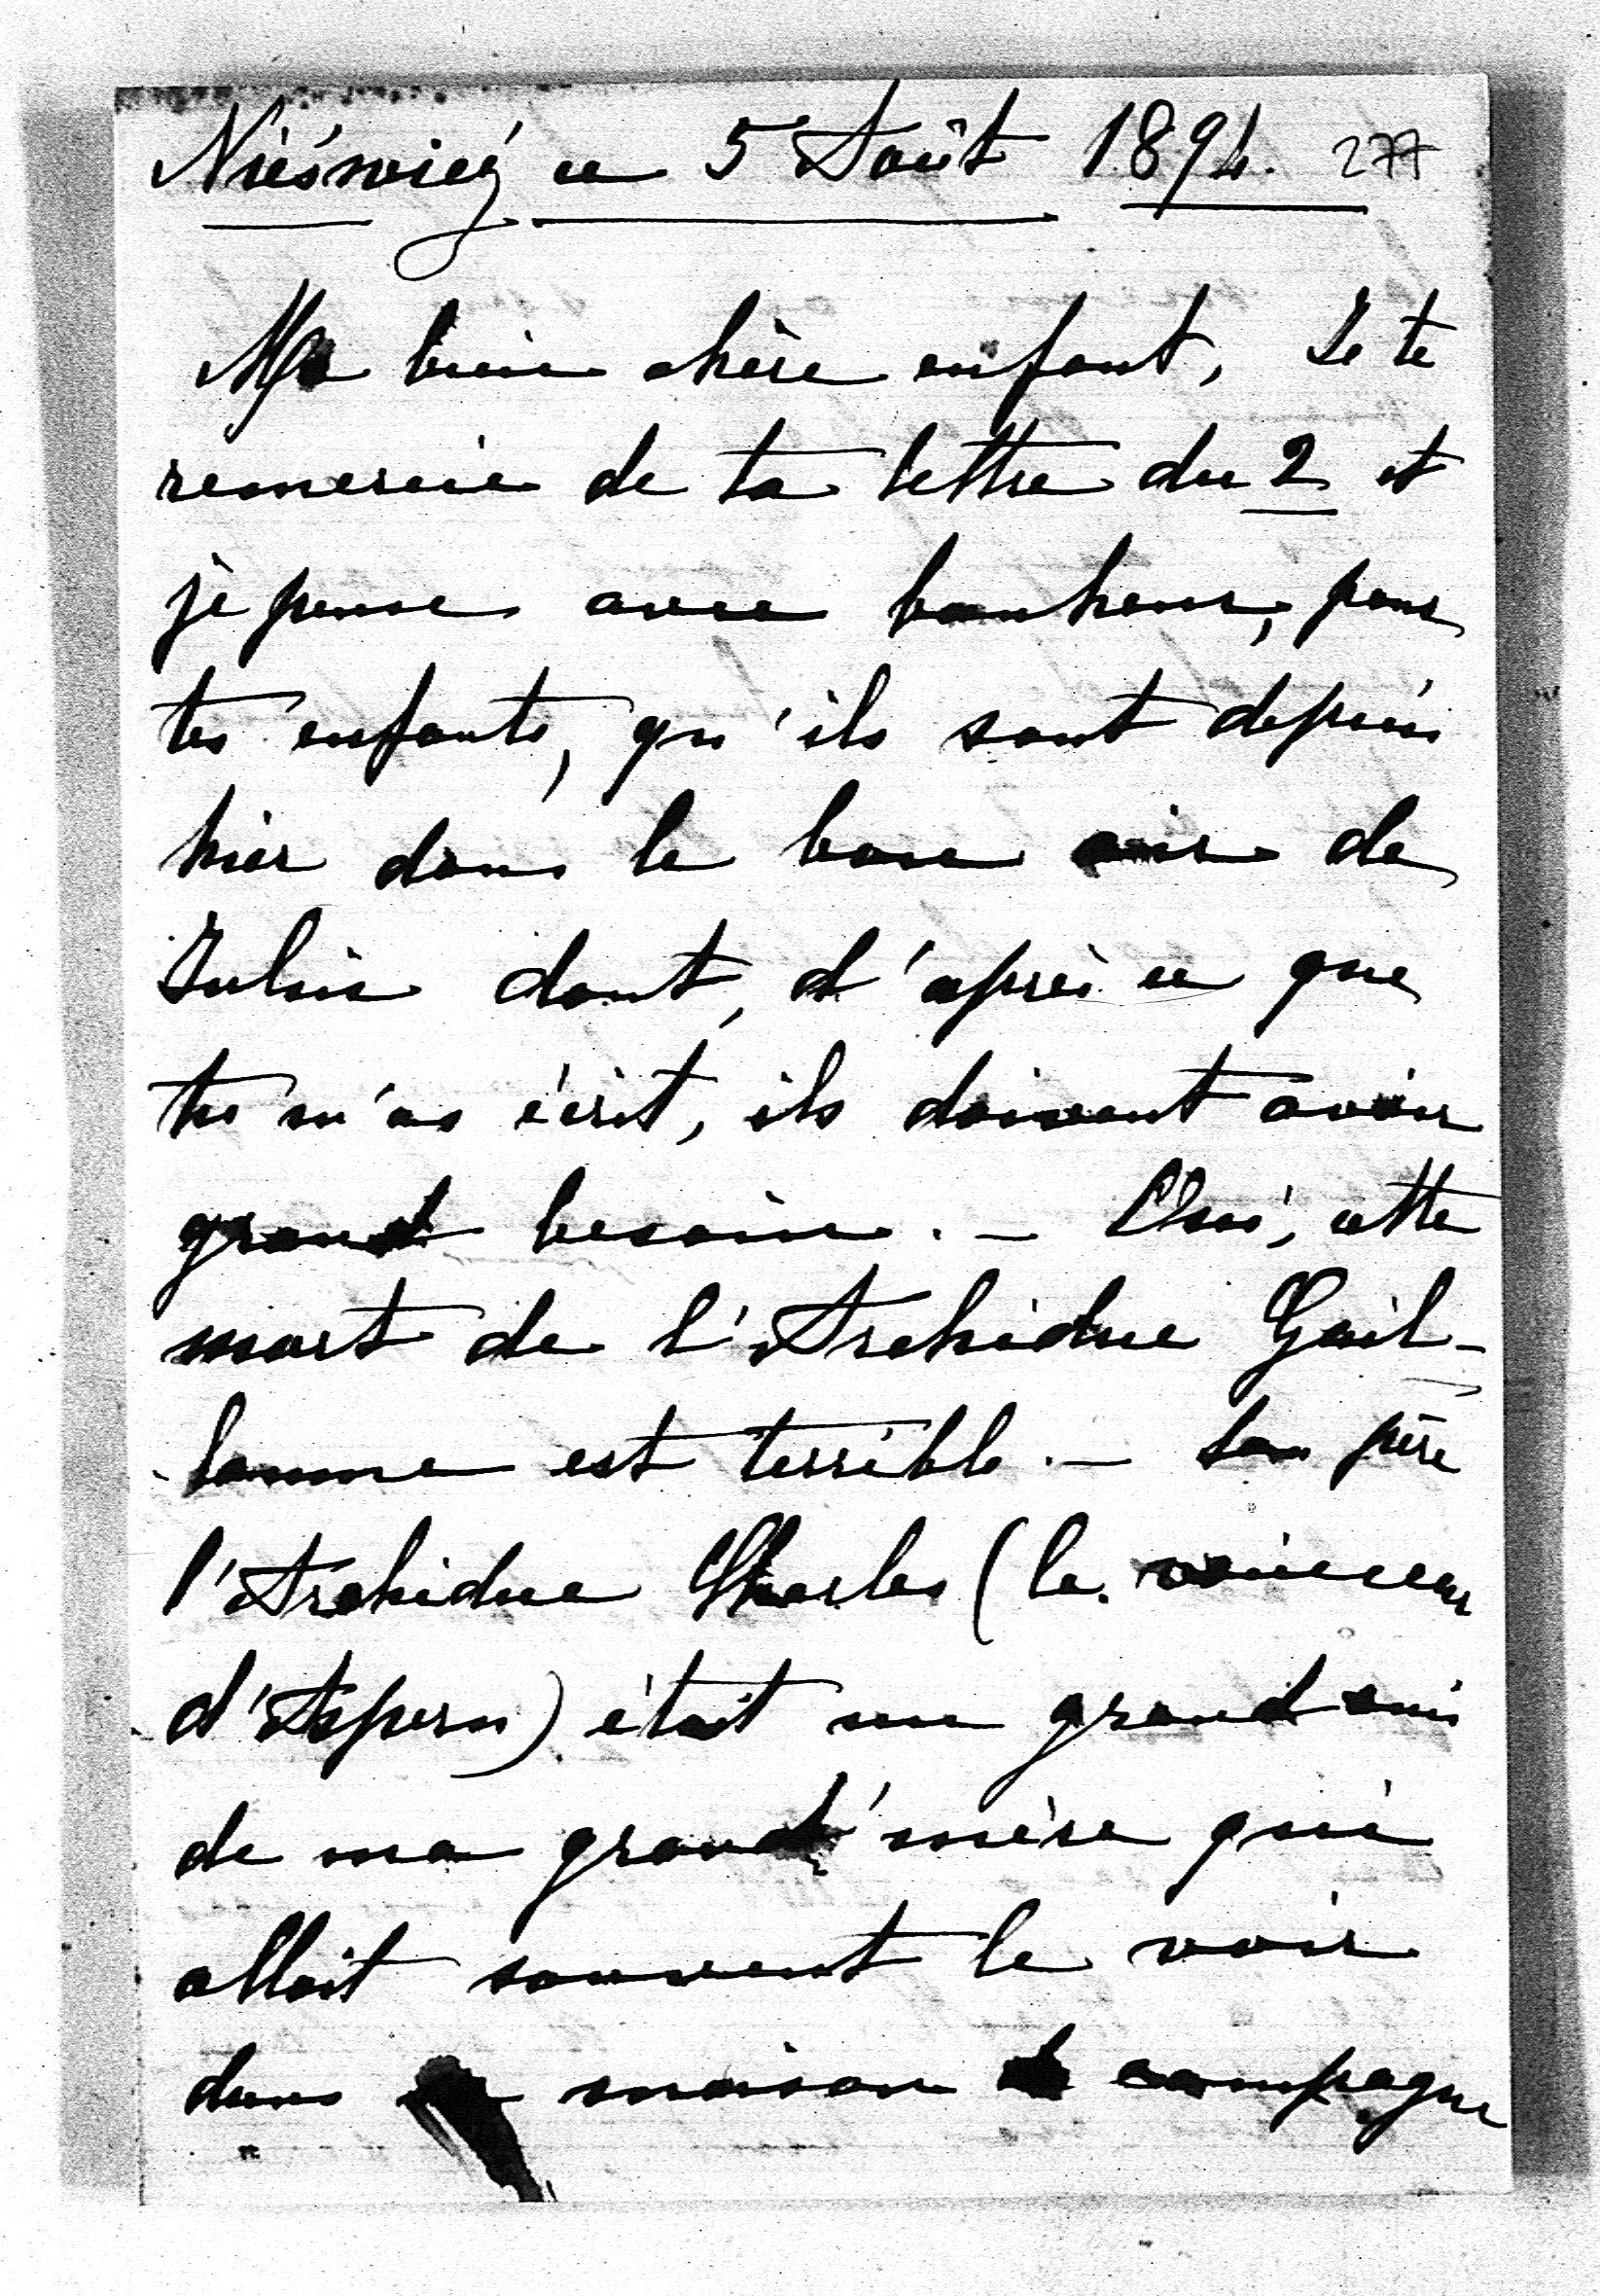 Nieśwież ce 5 Août 1894. 277
Ma bien chère enfant, Je te
remercie de ta lettre du 2 et
je pense avec bonheur, pour
tes enfants, qu'ils sont depuis
hier dans le bon air de
Julin dont, d'après ce que
tu m'as écrit, ils doivent avoir
grand besoin. – Oui, cette
mort de l'Archiduc Guil-
laume est terrible. – Son père
l'Archiduc Charles (le vainqueur
d'Aspern) était un grand ami
de ma grand'mère qui
allait souvent le voir
dans maison de campagne